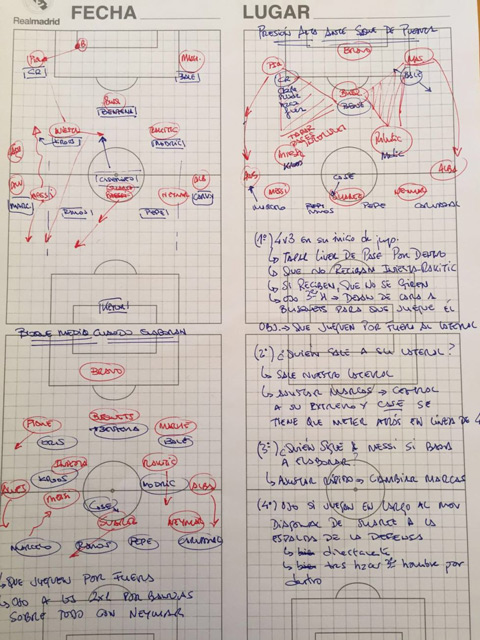 Realmadrid
FECHA
LUGAR
PIQ
B
MASC
CR
BALE
BUSI
BENZEMA
INIESTA
RAKITIC
KROOS
MODRIC
CASEMIRO
SUAREZ
MESSI
NEYMAR
ALB
MARC
RAMOS
PEPE
CARV
KEYLOR
BLOQUE MEDIO CUANDO ELABORAN
BRAVO
PIQUE
BUSQUETS
MASCHE
CRIS
BENZEMA
BALE
INIESTA
RAKITIC
KROOS
MODRIC
ALVES
MESSI
CASE
ALBA
SUAREZ
NEYMAR
MARCELO
RAMOS
PEPE
CARVAJAL
↳ QUE JUEGUEN POR FUERA
↳ OJO A LOS 2x1 POR BANDAS
SOBRE TODO CON NEYMAR
PRESIÓN ALTA ANTE SAQUE DE PUERTA
BRAVO
PIQ
MAS
CR
BALE
BUSI
BENZE
TAPAR
PASES
INTERIORES
INIESTA
RAKITIC
KROOS
MODRIC
ALVES
CASE
ALBA
MESSI
SUAREZ
NEYMAR
MARCELO
RAMOS
PEPE
CARVAJAL
(1º) 4x3 EN SU INICO DE JUEGO.
↳ TAPAR LINEA DE PASE POR DENTRO
↳ QUE NO RECIBAN INIESTA-RAKITIC
↳ SI RECIBEN, QUE NO SE GIREN
↳ OJO 3º H → DEJAN DE CARA A
BUSQUETS PARA QUE JUEGUE ÉL
OBJ. → QUE JUEGUEN POR FUERA AL LATERAL
(2º) ¿QUIÉN SALE A SU LATERAL?
↳ SALE NUESTRO LATERAL
↳ AJUSTAR MARCAS → CENTRAL
A SU EXTREMO Y CASE SE
TIENE QUE METER ATRÁS EN LÍNEA DE 4
(3º) ¿QUIÉN SIGUE A MESSI SI BAJA
A ELABORAR?
↳ AJUSTAR RÁPIDO → CAMBIAR MARCAS
(4º) OJO SI JUEGAN EN LARGO AL MOV
DIAGONAL DE SUAREZ A LA
ESPALDA DE LA DEFENSA
↳ bien directamente
↳ bien tras hacer 3er hombre por
dentro